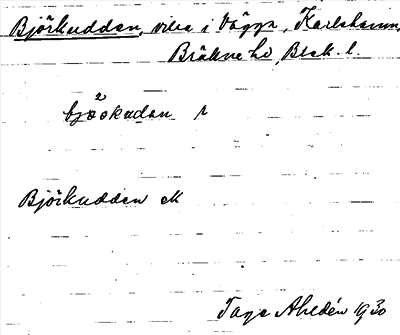 Björkudden, villa i Vägga, Karlshamn,
Bräkne hd, Blek. l.
2
bjöokudan r
Björkudden M
Tage Ahldén 1930